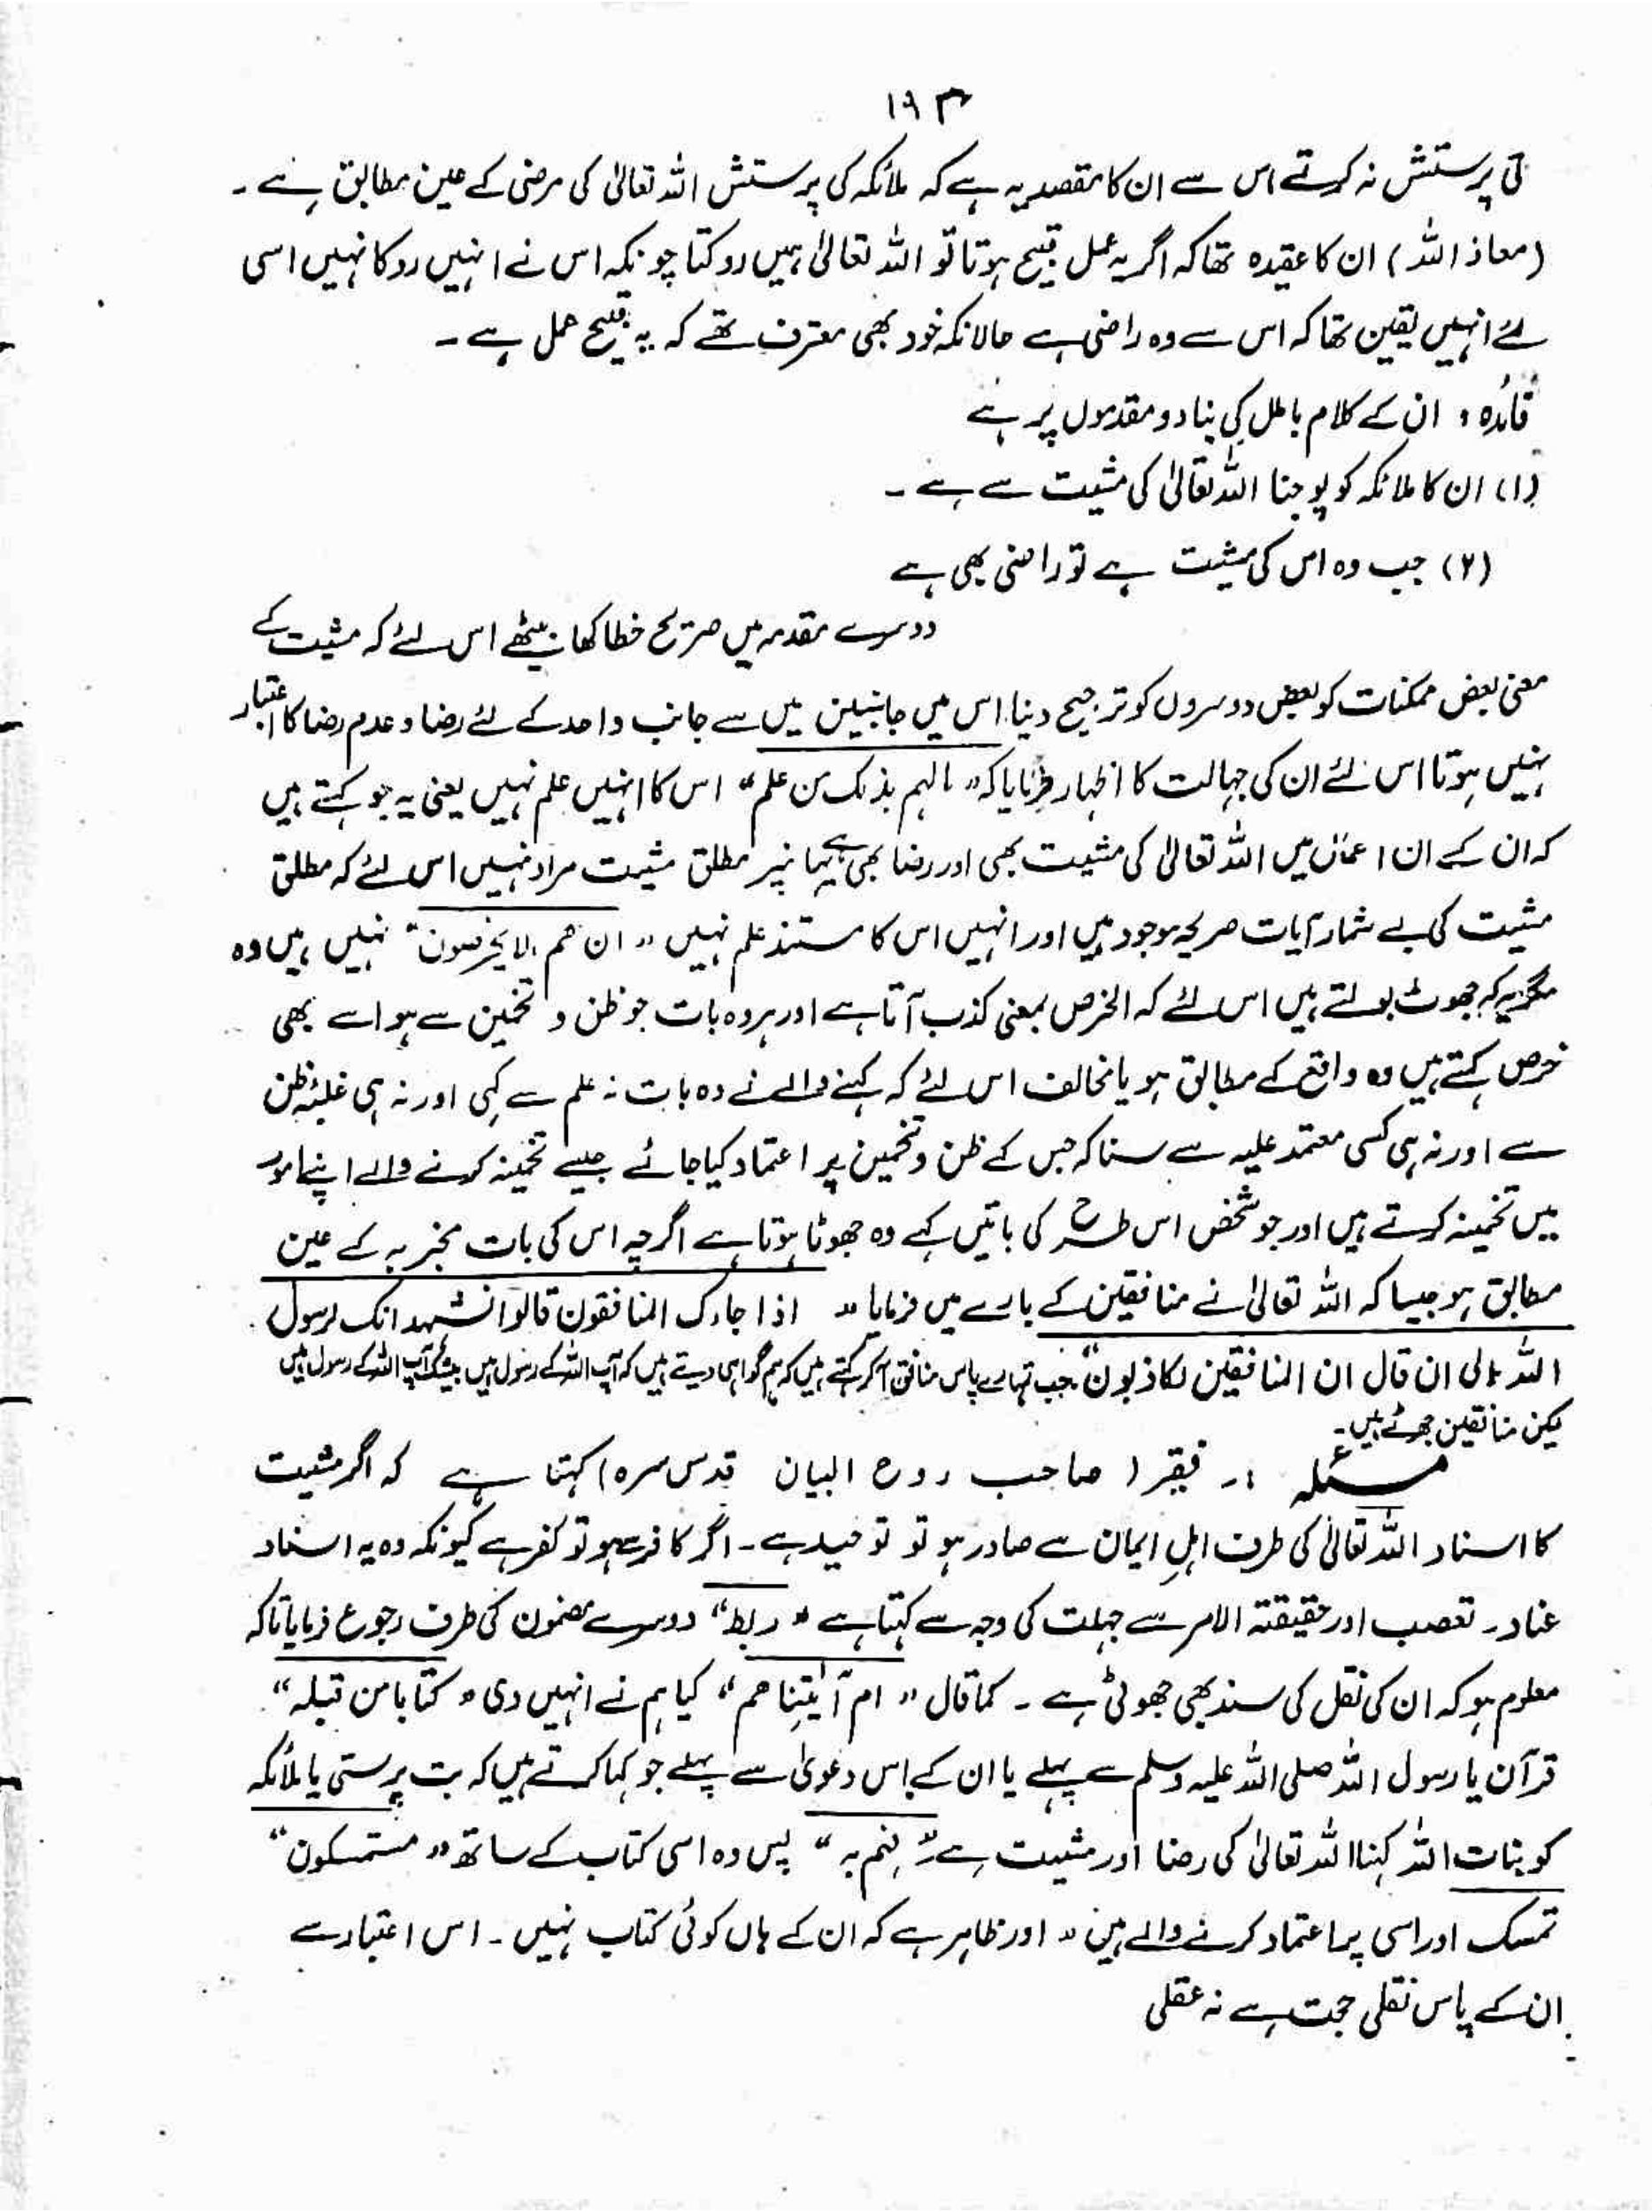 ۱۹۳
کی پرستش نہ کرتے اس سے ان کا مقصد یہ ہے کہ ملائکہ کی پرستش اللہ تعالیٰ کی مرضی کے عین مطابق ہے ۔
(معاذ اللہ) ان کا عقیدہ تھا کہ اگر یہ عمل قبیح ہوتا تو اللہ تعالیٰ ہمیں روکتا چونکہ اس نے انہیں روکا نہیں اسی
لئے انہیں یقین تھا کہ اس سے وہ راضی ہے حالانکہ خود بھی معترف تھے کہ یہ قبیح عمل ہے ۔
فائدہ : ان کے کلام باطل کی بنا دو مقدموں پر ہے
(۱) ان کا ملائکہ کو پوجنا اللہ تعالیٰ کی مشیت سے ہے ۔
(۲) جب وہ اس کی مشیت ہے تو راضی بھی ہے
دوسرے مقدمہ میں صریح خطا کھا بیٹھے اس لئے کہ مشیت کے
معنی بعض ممکنات کو بعض دوسروں کو ترجیح دینا اس میں جانبین میں سے جانب واحد کے لئے رضا و عدم رضا کا اعتبار
نہیں ہوتا اس لئے ان کی جہالت کا اظہار فرمایا کہ " مالہم بذلک من علم " اس کا انہیں علم نہیں یعنی یہ جو کہتے ہیں
کہ ان کے ان اعمال میں اللہ تعالیٰ کی مشیت بھی اور رضا بھی ہے یہاں پر مطلق مشیت مراد نہیں اس لئے کہ مطلق
مشیت کی بے شمار آیات صریحہ موجود ہیں اور انہیں اس کا مستند علم نہیں " ان ھم الا یخرصون " نہیں ہیں وہ
مگر یہ کہ جھوٹ بولتے ہیں اس لئے کہ الخرص بمعنی کذب آتا ہے اور ہر وہ بات جو ظن و تخمین سے ہو اسے بھی
خرص کہتے ہیں وہ واقع کے مطابق ہو یا مخالف اس لئے کہ کہنے والے نے وہ بات نہ علم سے کہی اور نہ ہی غلبۂ ظن
سے اور نہ ہی کسی معتمد علیہ سے سنا کہ جس کے ظن و تخمین پر اعتماد کیا جائے جیسے تخمینہ کرنے والے اپنے امور
میں تخمینہ کرتے ہیں اور جو شخص اس طرح کی باتیں کہے وہ جھوٹا ہوتا ہے اگرچہ اس کی بات مخبر بہ کے عین
مطابق ہو جیسا کہ اللہ تعالیٰ نے منافقین کے بارے میں فرمایا " اذا جاءک المنافقون قالوا نشہد انک لرسول
اللہ الی ان قال ان المنافقین لکاذبون " جب تمہارے پاس منافق آ کر کہتے ہیں کہ ہم گواہی دیتے ہیں کہ آپ اللہ کے رسول ہیں بیشک آپ اللہ کے رسول ہیں
لیکن منافقین جھوٹے ہیں ۔
مسئلہ :۔ فقیر (صاحب روح البیان قدس سرہ) کہتا ہے کہ اگر مشیت
کا اسناد اللہ تعالیٰ کی طرف اہلِ ایمان سے صادر ہو تو توحید ہے ۔ اگر کافر سے ہو تو کفر ہے کیونکہ وہ یہ اسناد
عناد ۔ تعصب اور حقیقتہ الامر سے جہلت کی وجہ سے کہتا ہے " ربط " دوسرے مضمون کی طرف رجوع فرمایا تاکہ
معلوم ہو کہ ان کی نقل کی سند بھی جھوٹی ہے ۔ کما قال " ام آتینا ھم " کیا ہم نے انہیں دی " کتابا من قبلہ "
قرآن یا رسول اللہ صلی اللہ علیہ وسلم سے پہلے یا ان کے اس دعویٰ سے پہلے جو کہا کرتے ہیں کہ بت پرستی یا ملائکہ
کو بنات اللہ کہنا اللہ تعالیٰ کی رضا اور مشیت ہے " فہم بہ " پس وہ اسی کتاب کے ساتھ " مستمسکون "
تمسک اور اسی پر اعتماد کرنے والے ہیں " اور ظاہر ہے کہ ان کے ہاں کوئی کتاب نہیں ۔ اس اعتبار سے
ان کے پاس نقلی حجت ہے نہ عقلی